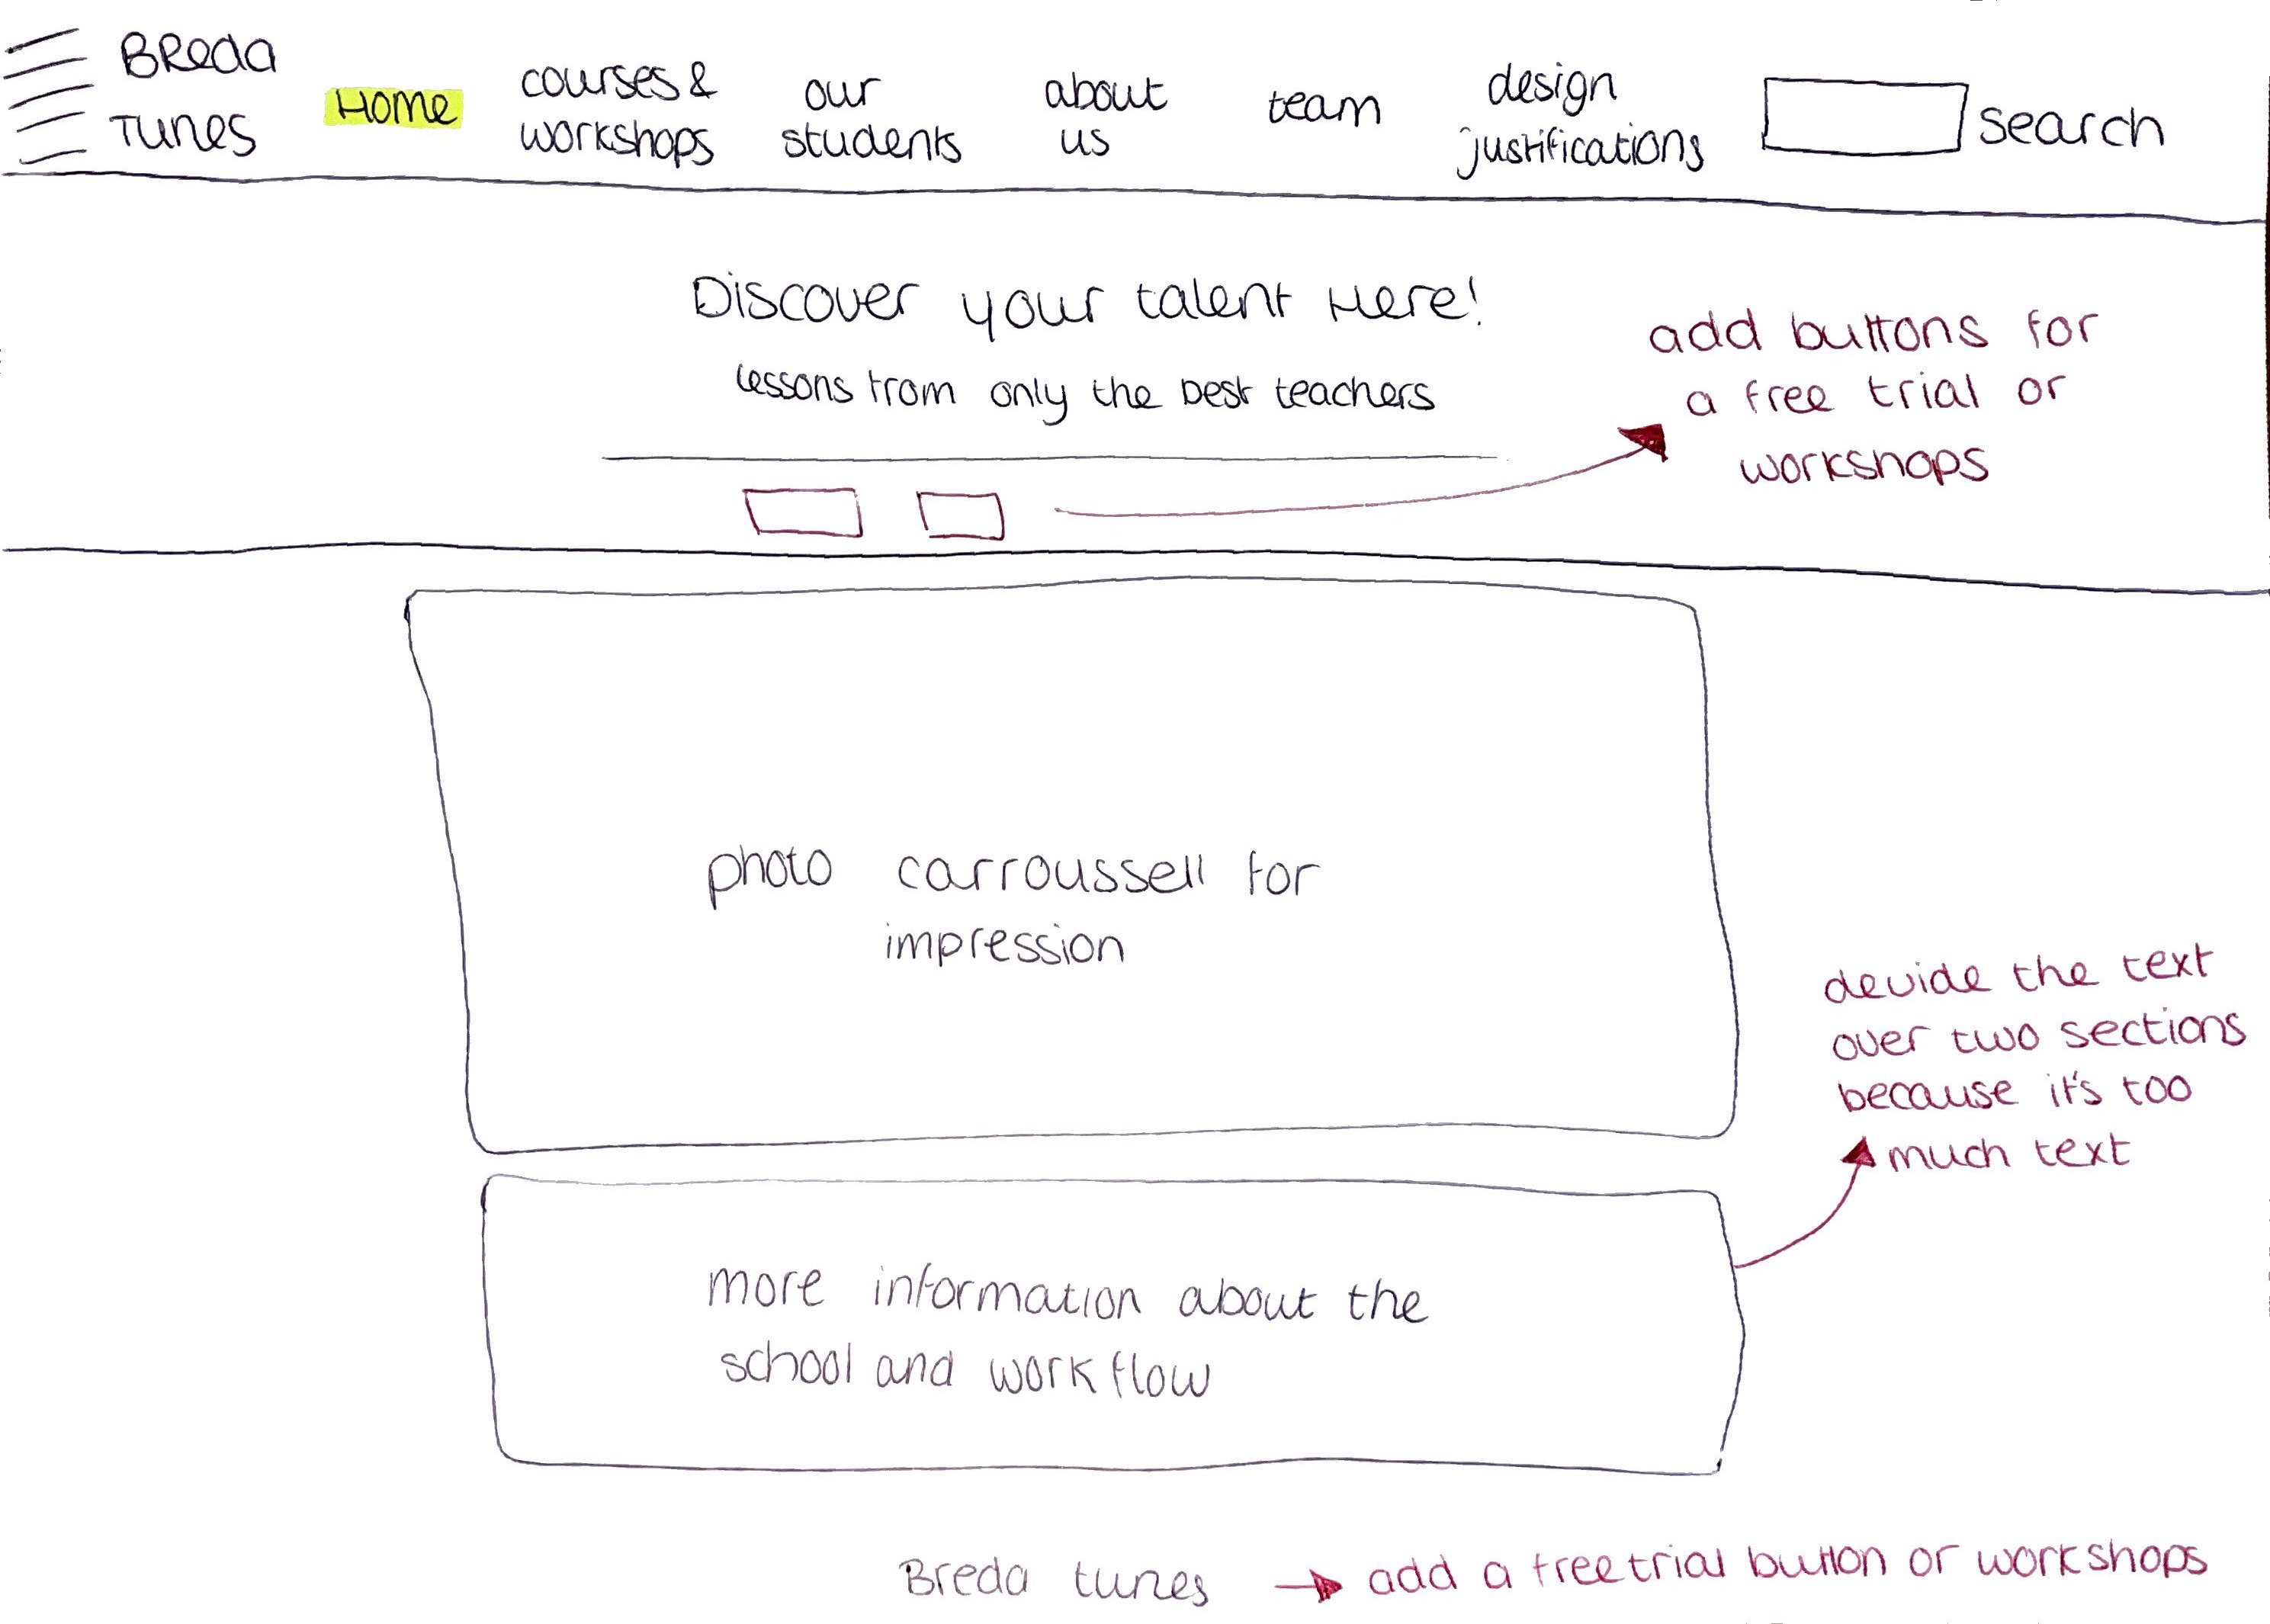 BReda
Tunes
Home
courses &
workshops
our
students
about
us
team
design
justifications
search
Discover your talent Here!
Lessons from only the best teachers
add buttons for
a free trial or
workshops
photo carroussell for
impression
devide the text
over two sections
because it's too
much text
more information about the
school and workflow
Breda tunes → add a free trial button or workshops